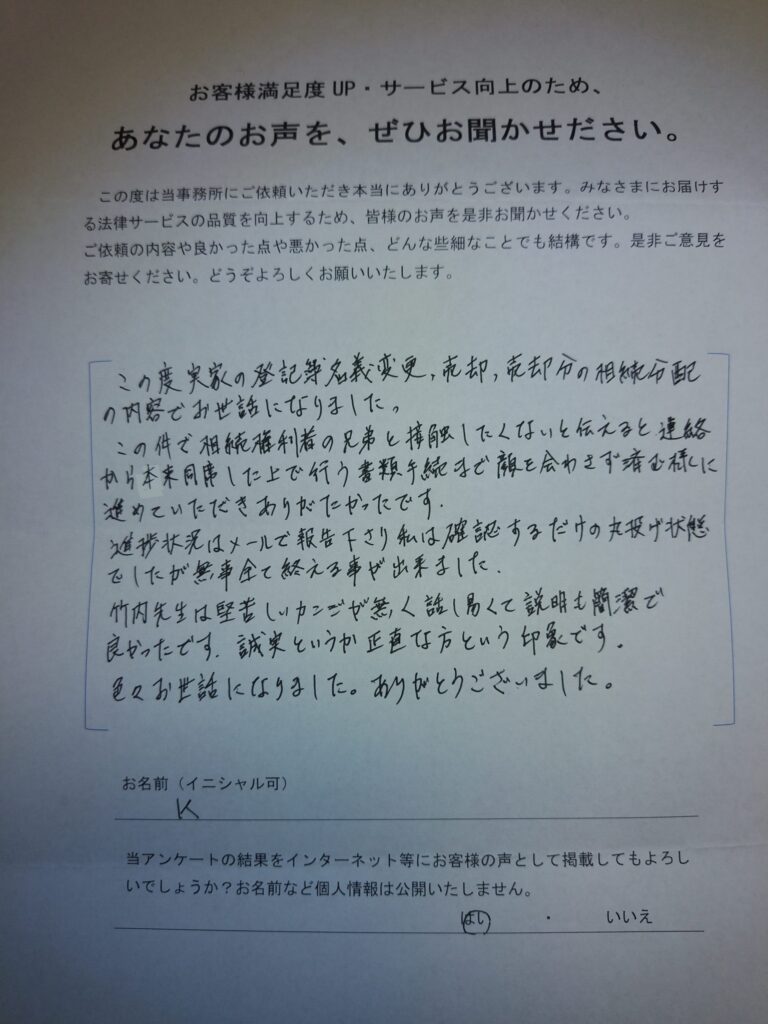 お客様満足度UP・サービス向上のため、
あなたのお声を、ぜひお聞かせださい。
この度は当事務所にご依頼いただき本当にありがとうございます。みなさまにお届けす
る法律サービスの品質を向上するため、皆様のお声を是非お聞かせください。
ご依頼の内容や良かった点や悪かった点、どんな些細なことでも結構です。是非ご意見を
お寄せください。どうぞよろしくお願いいたします。
この度実家の登記簿名義変更,売却,売却分の相続分配
の内容でお世話になりました。
この件で相続権利者の兄弟と接触したくないと伝えると連絡
から本来同席した上で行う書類手続まで顔を会わさず済む様に
進めていただきありがたかったです.
進捗状況はメールで報告下さり私は確認するだけの丸投げ状態
でしたが無事全て終える事が出来ました.
竹内先生は堅苦しいカンジが無く話し易くて説明も簡潔で
良かったです.誠実というか正直な方という印象です.
色々お世話になりました。ありがとうございました。
お名前(イニシャル可)
K
当アンケートの結果をインターネット等にお客様の声として掲載してもよろし
いでしょうか?お名前など個人情報は公開いたしません。
はい ・ いいえ